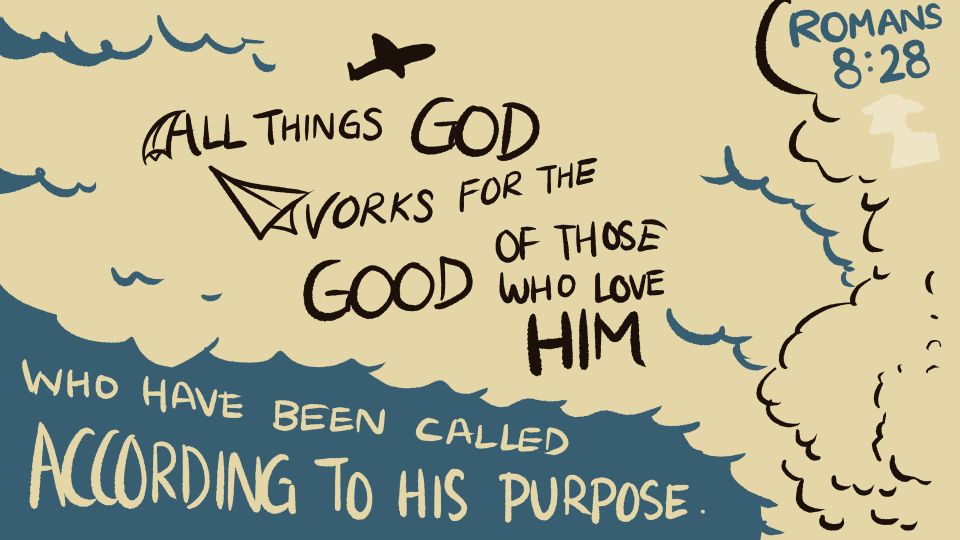 ROMANS
8:28
ALL THINGS GOD
WORKS FOR THE
GOOD OF THOSE
WHO LOVE
HIM
WHO HAVE BEEN CALLED
ACCORDING TO HIS PURPOSE.